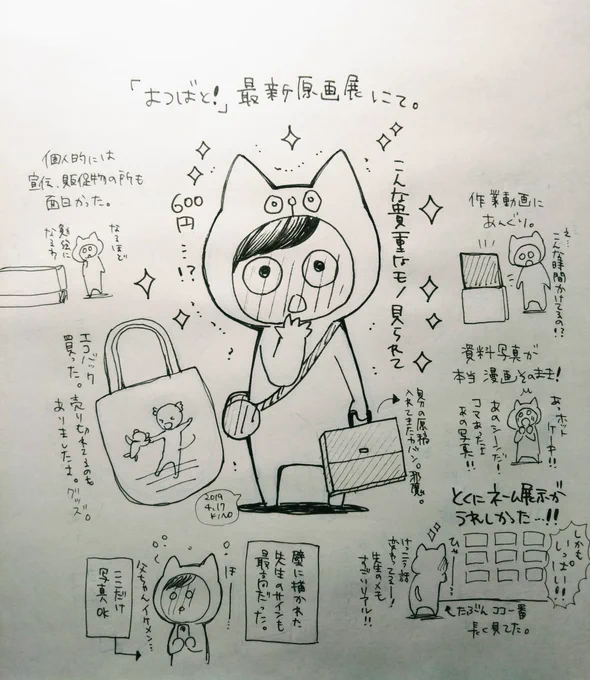 「よつばと!」最新原画展にて。
個人的には
宣伝、販促物の所も
面白かった。
なるほど
勉強に
なるわ
こんな貴重なモノ見られて
600
円…!?
作業動画に
あんぐり。
え…
こんな時間かけてるの!?
資料写真が
本当漫画そのまま!
あっホット
ケーキ!!
あのシーンだ!
コマあったよ
あの写真!!
エコバック
買った。
売り切れてるのも
ありましたよ。グッズ。
自分の原稿
入れてきたカバン。邪魔。
2019
4.17
KINO
とくにネーム展示が
うれしかった…!!
しかも
いーっぱい
しっぱい!!!
ひゃー
けっこう話
変わってるー!
先生のメモ
すごいリアル!!
たぶんココ一番
長く見てた。
壁に描かれた
先生のサインも
最高だった。
はー
父ちゃんイケメン…
ここだけ
写真OK